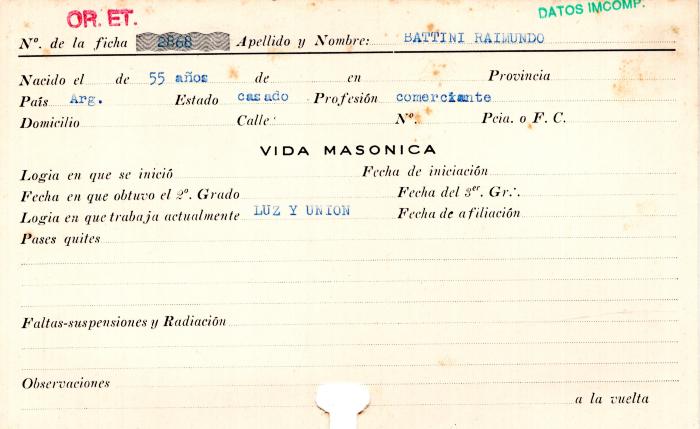 OR. ET.
DATOS IMCOMP.
Nº. de la ficha 2868 Apellido y Nombre: BATTINI RAIMUNDO
Nacido el de 55 años de en Provincia
País Arg. Estado casado Profesión comerciante
Domicilio Calle: Nº. Pcia. o F. C.
VIDA MASONICA
Logia en que se inició Fecha de iniciación
Fecha en que obtuvo el 2º. Grado Fecha del 3er. Gr∴
Logia en que trabaja actualmente LUZ Y UNION Fecha de afiliación
Pases quites
Faltas-suspensiones y Radiación
Observaciones
a la vuelta